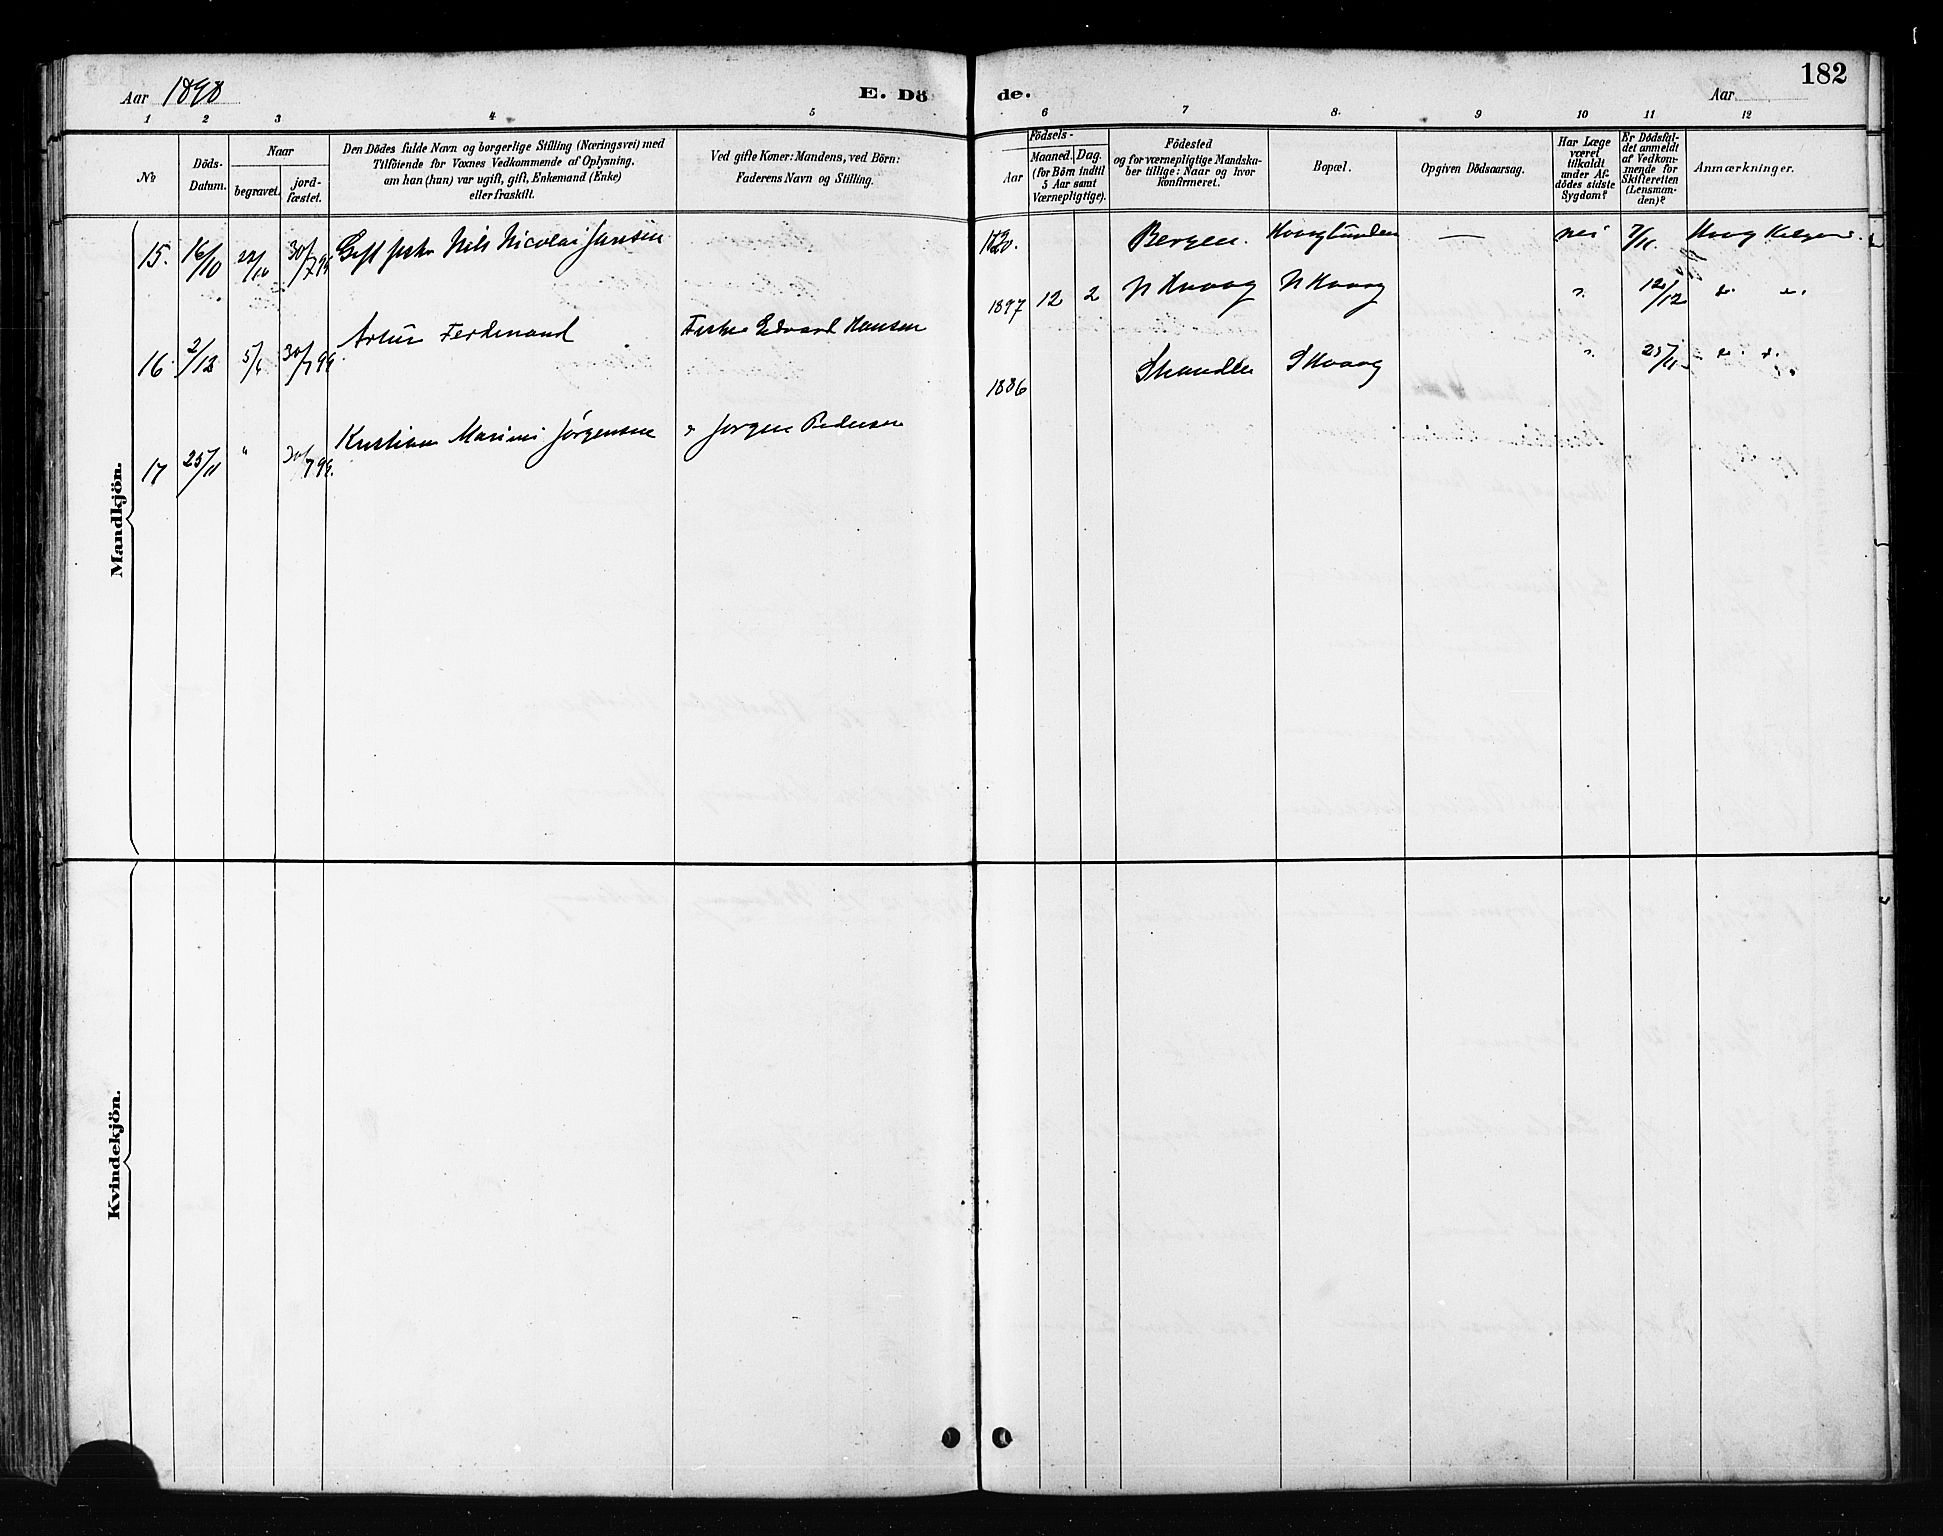 Aar 1898
E. Dö
de.
Aar
182
1 2 3 4 5 6 7 8. 9 10 11 12
No
Döds-
Datum.
Naar
begravet.
jord-
fæstet.
Den Dödes fulde Navn og borgerlige Stilling (Næringsvei) med
Tilföiende for Voxnes Vedkommende af Oplysning,
om han (hun) var ugift, gift, Enkemand (Enke)
eller fraskilt.
Ved gifte Koner: Mandens, ved Börn:
Faderens Navn og Stilling.
Födsels-
Aar
Maaned. Dag.
(for Börn indtil
5 Aar samt
Værnepligtige).
Födested
og for værnepligtige Mandska-
ber tillige: Naar og hvor
Konfirmeret.
Bopæl.
Opgiven Dödsaarsag.
Har Læge
været
tilkaldt
under Af-
dödes sidste
Sygdom?
Er Dödsfal-
det anmeldt
af Vedkom-
mende for
Skifteretten
(Lensman-
den)?
Anmærkninger.
Mandkjön.
15. 16/10 22/10 30/7 99 Gift Nils Nicolai Jansen Bergen. nei 7/11.
16. 2/12 30/7 99 Artur Ferdinand Fisker Edvard Hansen 1897 12 2 12/12
17 25/11 " 30/7 99. Kristian Marius Jørgensen " Jørgen Pedersen 1886
Kvindekjön.